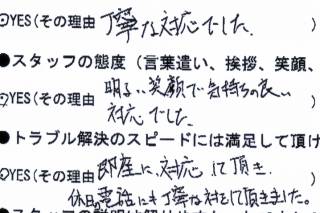 ○YES(その理由 丁寧な対応でした。 )
●スタッフの態度（言葉遣い、挨拶、笑顔、
○YES(その理由 明るい笑顔で気持ちの良い )
対応でした。
●トラブル解決のスピードには満足して頂け
○YES(その理由 即座に対応して頂き、 )
休日電話にも丁寧な対応して頂きました。
●スタッフの説明は